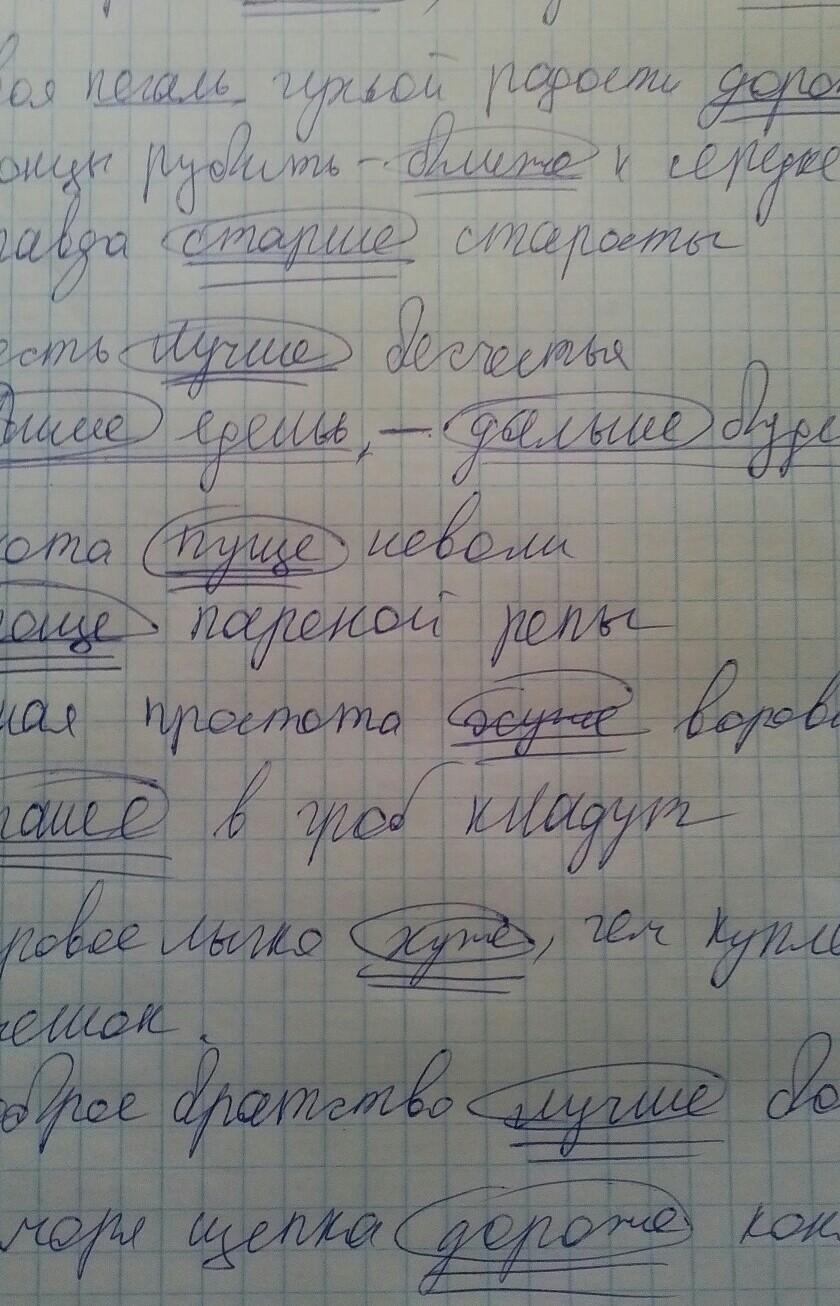 воя печаль чужой радости доро
онцы рубить - ближе к середке
равда старше старосты
есть лучше бесчестья
ише едешь, - дальше буде
ота пуще неволи
още пареной репы
ная простота хуже воровс
раше в гроб кладут
ровое лычко хуже, чем купле
ешок.
оброе братство лучше бо
моря щепка дороже кон